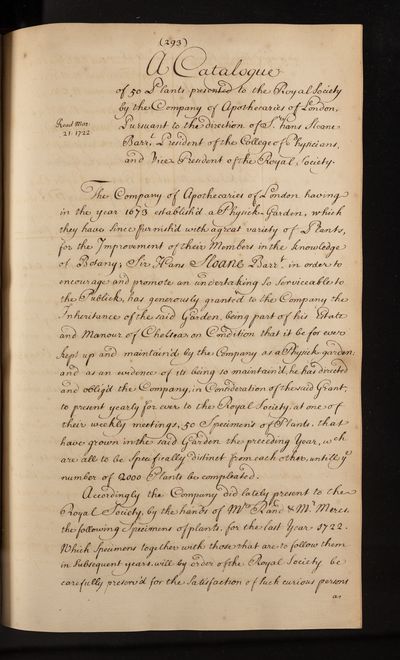 (293)
A Catalogue
of 50 Plants presented to the Royal Society
by the Company of Apothecaries of London,
Read Mar. 21. 1722
Pursuant to the direction of Sr. Hans Sloane
Barr.t President of the College of Physicians,
and Vice President of the Royal Society.
The Company of Apothecaries of London having
in the year 1673 establish'd a Physick-Garden, which
they have since furnish'd with a great variety of Plants,
for the Improvement of their Members in the knowledge
of Botany; Sir Hans Sloane Barr.t in order to
encourage and promote an undertaking so serviceable to
the Publick, has generously granted to the Company the
Inheritance of the said Garden, being part of his Estate
and Manour of Chelsea on Condition that it be for ever
kept up and maintain'd by the Company as a Physick garden,
and as an evidence of its being so maintain'd, he has directed
and oblig'd the Company, in Consideration of the said Grant,
to present yearly for ever to the Royal Society, at one of
their weekly meetings, 50 Specimens of Plants, that
have grown in the said Garden the preceding Year, wch
are all to be specifically distinct from each other, untill ye
number of 2000 Plants be compleated.
Accordingly the Company did lately present to the
Royal Society, by the hands of Mr. Rand & Mr. Meres,
the following Specimens of plants, for the last Year 1722.
Which specimens together with those that are to follow them
in subsequent years, will by order of the Royal Society be
carefully preserv'd for the Satisfaction of such curious persons
as